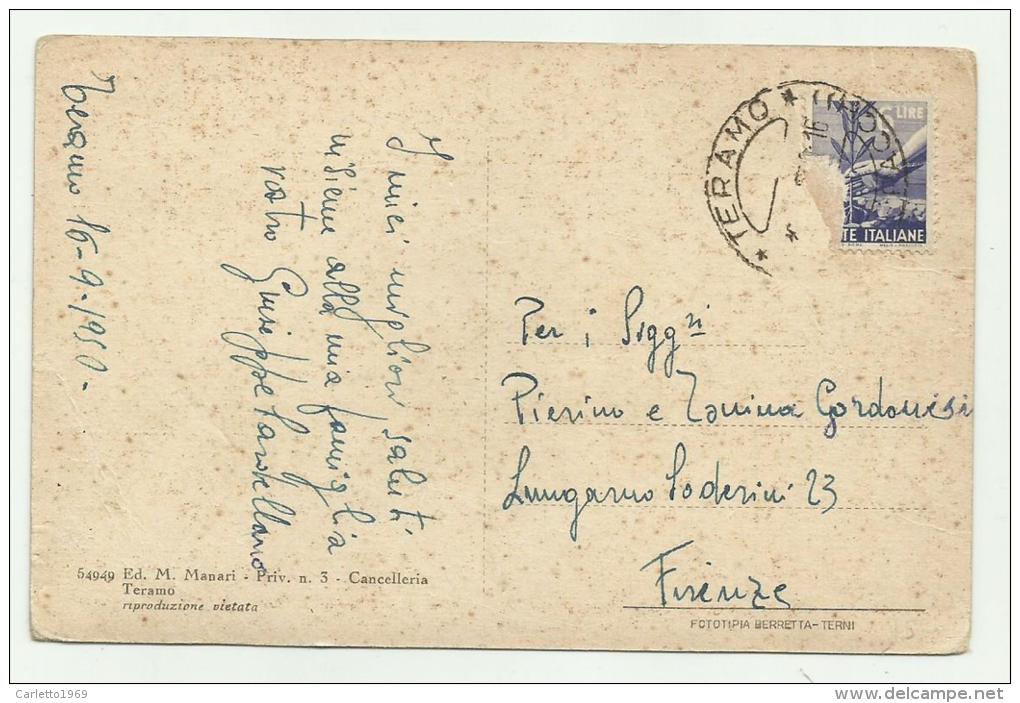 Teramo 16-9-1950-
I miei migliori saluti
insieme alla mia famiglia
vostro Giuseppe
54949 Ed. M. Manari - Priv. n. 3 - Cancelleria
Teramo
riproduzione vietata
* TERAMO *
LIRE
TE ITALIANE
Per i Sigg.ri
Pierino e Zanina Gordonesi
Lungarno Soderini 23
Firenze
FOTOTIPIA BERRETTA-TERNI
Carletto1969
delcampe.net